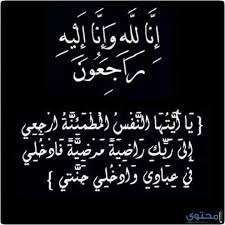 إِنَّا لِلَّهِ وَإِنَّا إِلَيْهِ
رَاجِعُونَ
{ يَا أَيَّتُهَا النَّفْسُ الْمُطْمَئِنَّةُ ارْجِعِي
إِلَى رَبِّكِ رَاضِيَةً مَرْضِيَّةً فَادْخُلِي
فِي عِبَادِي وَادْخُلِي جَنَّتِي }
محتوى